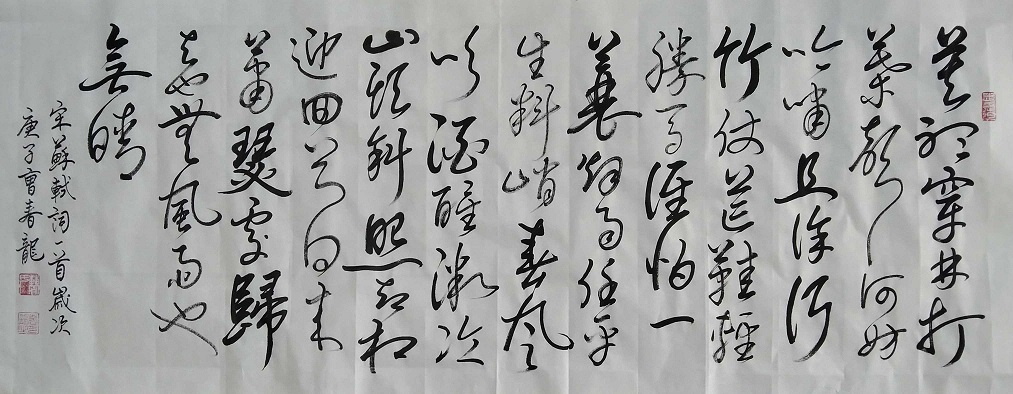 莫聽穿林打
葉聲何妨
吟嘯且徐行
竹杖芒鞋輕
勝馬誰怕一
蓑烟雨任平
生料峭春風
吹酒醒微冷
山頭斜照却相
迎回首向来
蕭瑟處歸
去也無風雨也
無晴
宋蘇軾詞一首歲次
庚子曹春龍